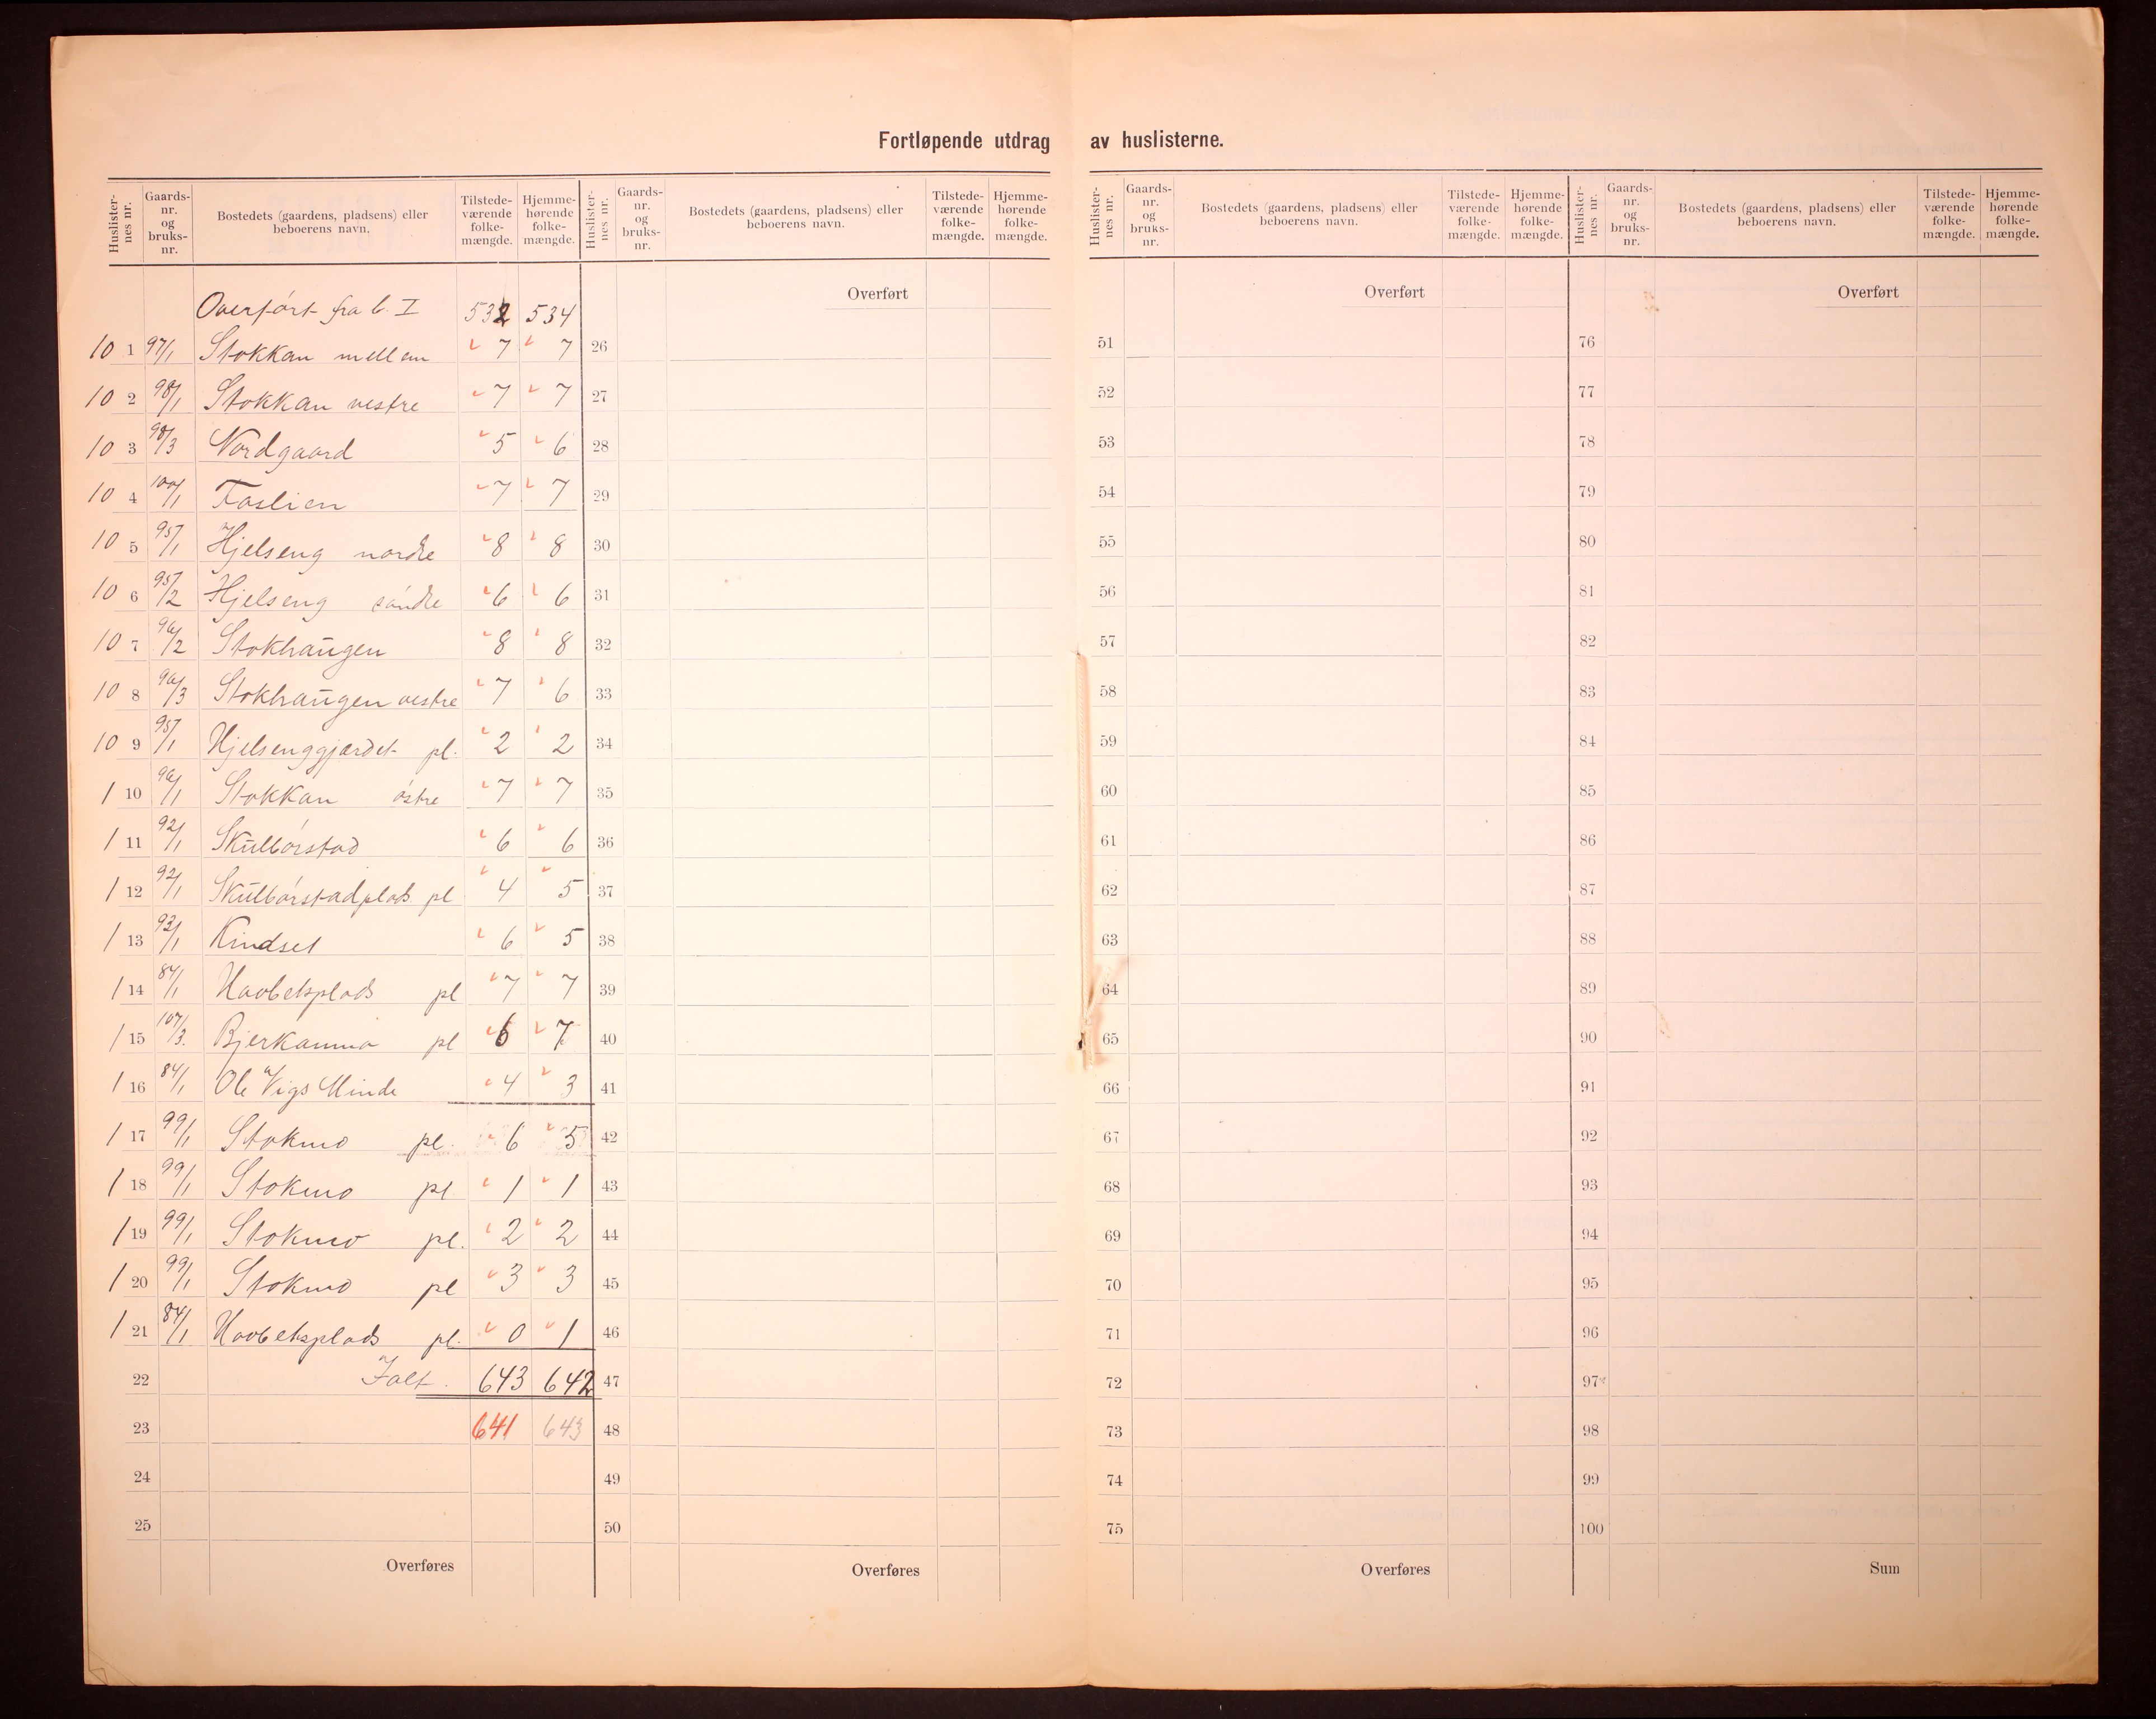 Fortløpende utdrag av huslisterne.
Huslister-nes nr. Gaards-nr. og bruks-nr. Bostedets (gaardens, pladsens) eller beboerens navn. Tilstede-værende folke-mængde. Hjemme-hørende folke-mængde.
Overført fra b. I 532 534
10 1 97/1 Stokkan mellem 7 7
10 2 98/1 Stokkan vestre 7 7
10 3 98/3 Nordgaard 5 6
10 4 100/1 Faslien 7 7
10 5 95/1 Hjelseng nordre 8 8
10 6 95/2 Hjelseng søndre 6 6
10 7 96/2 Stokhaugen 8 8
10 8 96/3 Stokhaugen vestre 7 6
10 9 95/1 Hjelsenggjærdet pl. 2 2
1 10 96/1 Stokkan østre 7 7
1 11 92/1 Skulbørstad 6 6
1 12 92/1 Skulbørstadplads pl 4 5
1 13 93/1 Kindset 6 5
1 14 84/1 Havbeksplads pl 7 7
1 15 107/3. Bjerkanmo pl 6 7
1 16 84/1 Ole Vigs Minde 4 3
1 17 99/1 Stokmo pl. 6 5
1 18 99/1 Stokmo pl 1 1
1 19 99/1 Stokmo pl. 2 2
1 20 99/1 Stokmo pl 3 3
1 21 84/1 Havbeksplads pl. 0 1
22 Ialt. 643 642
23 641 643
24
25
Overføres
Huslister-nes nr. Gaards-nr. og bruks-nr. Bostedets (gaardens, pladsens) eller beboerens navn. Tilstede-værende folke-mængde. Hjemme-hørende folke-mængde.
Overført
26
27
28
29
30
31
32
33
34
35
36
37
38
39
40
41
42
43
44
45
46
47
48
49
50
Overføres
Huslister-nes nr. Gaards-nr. og bruks-nr. Bostedets (gaardens, pladsens) eller beboerens navn. Tilstede-værende folke-mængde. Hjemme-hørende folke-mængde.
Overført
51
52
53
54
55
56
57
58
59
60
61
62
63
64
65
66
67
68
69
70
71
72
73
74
75
Overføres
Huslister-nes nr. Gaards-nr. og bruks-nr. Bostedets (gaardens, pladsens) eller beboerens navn. Tilstede-værende folke-mængde. Hjemme-hørende folke-mængde.
Overført
76
77
78
79
80
81
82
83
84
85
86
87
88
89
90
91
92
93
94
95
96
97
98
99
100
Sum